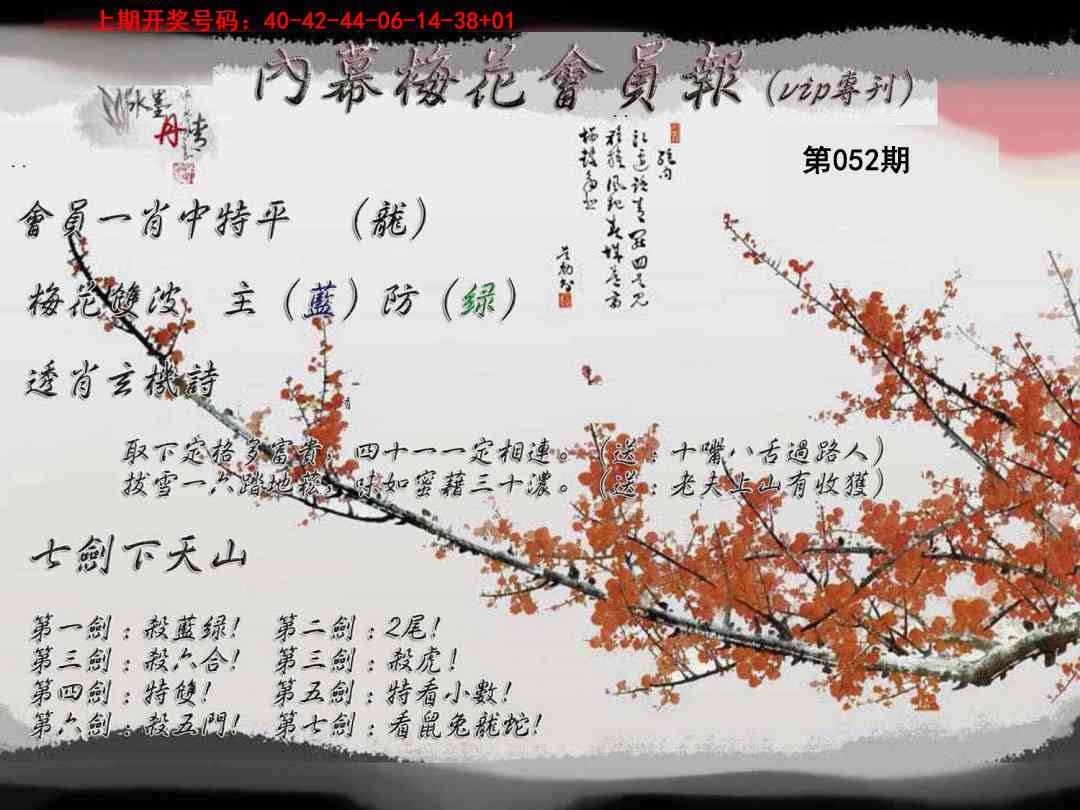 上期开奖号码：40-42-44-06-14-38+01
內幕梅花會員報(vip專刊)
水墨
丹青
第052期
會員一肖中特平 （龍）
梅花雙波 主（藍）防（绿）
透肖玄機詩
取下定格多富貴，四十一一定相連。（送：十嘴八舌過路人）
拔雪一六踏地菘，味如蜜藕三十濃。（送：老夫上山有收獲）
七劍下天山
第一劍：殺藍绿！ 第二劍：2尾！
第三劍：殺六合！ 第三劍：殺虎！
第四劍：特雙！ 第五劍：特看小數！
第六劍：殺五門！ 第七劍：看鼠兔龍蛇！